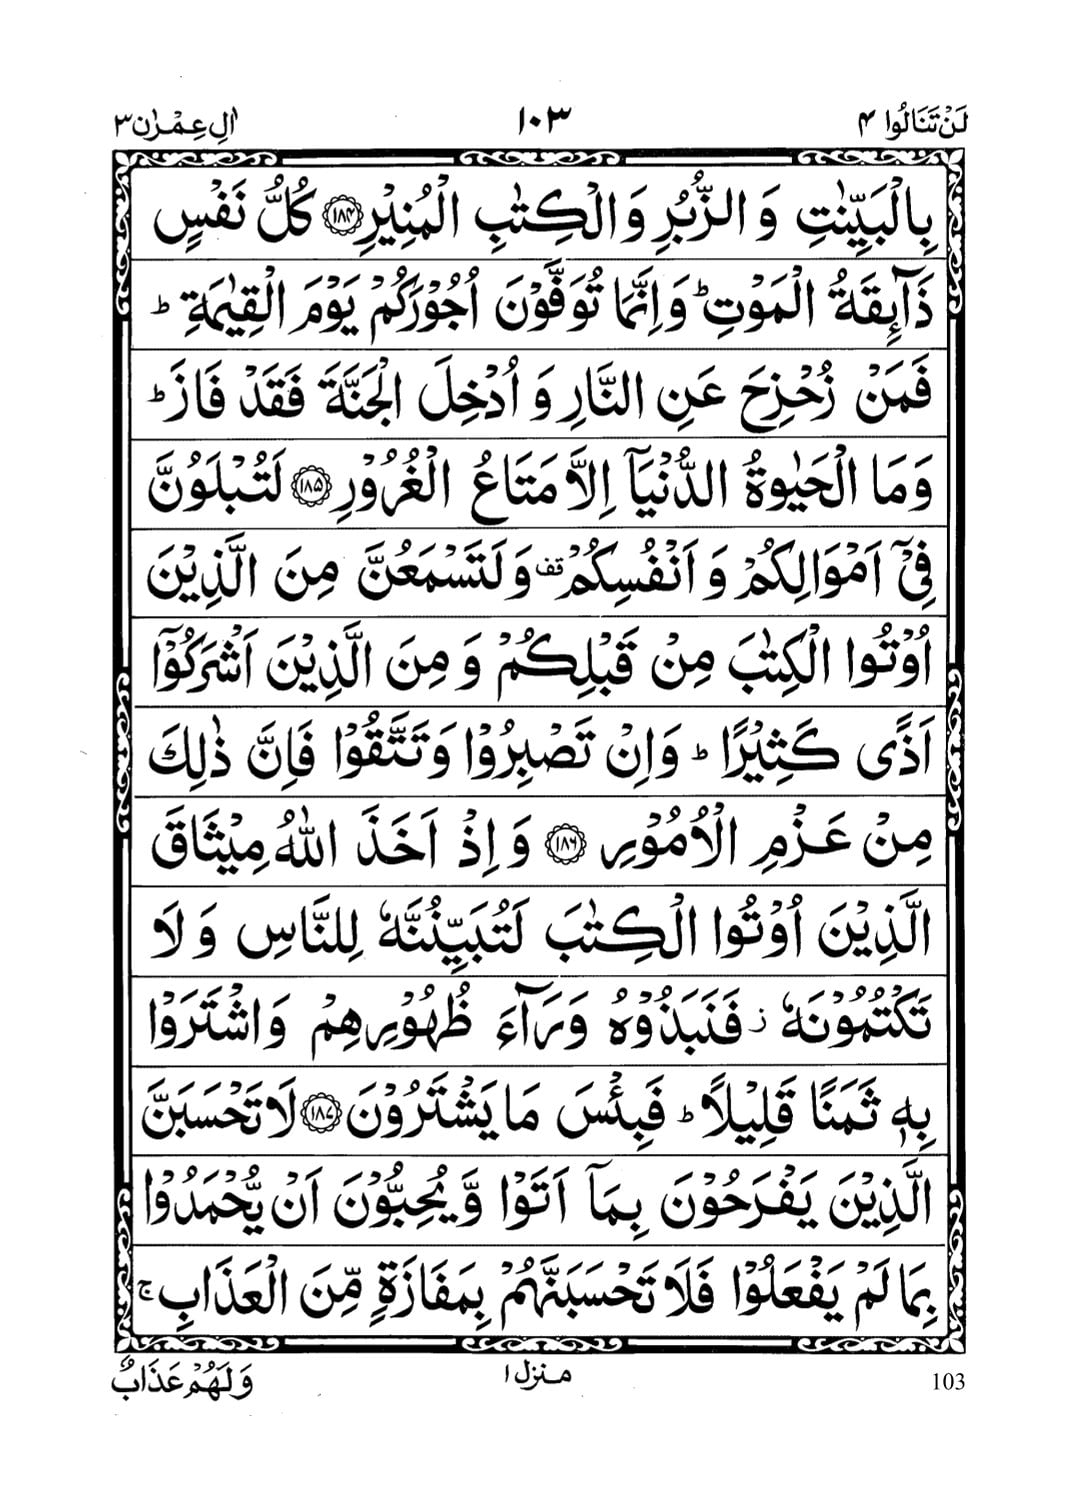 لَنْ تَنَالُوا ۴
۱۰۳
اٰلِ عِمْرٰن ۳
بِالْبَيِّنٰتِ وَ الزُّبُرِ وَ الْكِتٰبِ الْمُنِيْرِ ۝۱۸۴ كُلُّ نَفْسٍ
ذَآىِٕقَةُ الْمَوْتِ ؕ وَ اِنَّمَا تُوَفَّوْنَ اُجُوْرَكُمْ يَوْمَ الْقِيٰمَةِ ؕ
فَمَنْ زُحْزِحَ عَنِ النَّارِ وَ اُدْخِلَ الْجَنَّةَ فَقَدْ فَازَ ؕ
وَ مَا الْحَيٰوةُ الدُّنْيَاۤ اِلَّا مَتَاعُ الْغُرُوْرِ ۝۱۸۵ لَتُبْلَوُنَّ
فِيْۤ اَمْوَالِكُمْ وَ اَنْفُسِكُمْ ۫ وَ لَتَسْمَعُنَّ مِنَ الَّذِيْنَ
اُوْتُوا الْكِتٰبَ مِنْ قَبْلِكُمْ وَ مِنَ الَّذِيْنَ اَشْرَكُوْۤا
اَذًى كَثِيْرًا ؕ وَ اِنْ تَصْبِرُوْا وَ تَتَّقُوْا فَاِنَّ ذٰلِكَ
مِنْ عَزْمِ الْاُمُوْرِ ۝۱۸۶ وَ اِذْ اَخَذَ اللّٰهُ مِيْثَاقَ
الَّذِيْنَ اُوْتُوا الْكِتٰبَ لَتُبَيِّنُنَّهٗ لِلنَّاسِ وَ لَا
تَكْتُمُوْنَهٗ ؗ فَنَبَذُوْهُ وَرَآءَ ظُهُوْرِهِمْ وَ اشْتَرَوْا
بِهٖ ثَمَنًا قَلِيْلًا ؕ فَبِئْسَ مَا يَشْتَرُوْنَ ۝۱۸۷ لَا تَحْسَبَنَّ
الَّذِيْنَ يَفْرَحُوْنَ بِمَاۤ اَتَوْا وَّ يُحِبُّوْنَ اَنْ يُّحْمَدُوْا
بِمَا لَمْ يَفْعَلُوْا فَلَا تَحْسَبَنَّهُمْ بِمَفَازَةٍ مِّنَ الْعَذَابِ ۚ
103
منزل ۱
وَ لَهُمْ عَذَابٌ